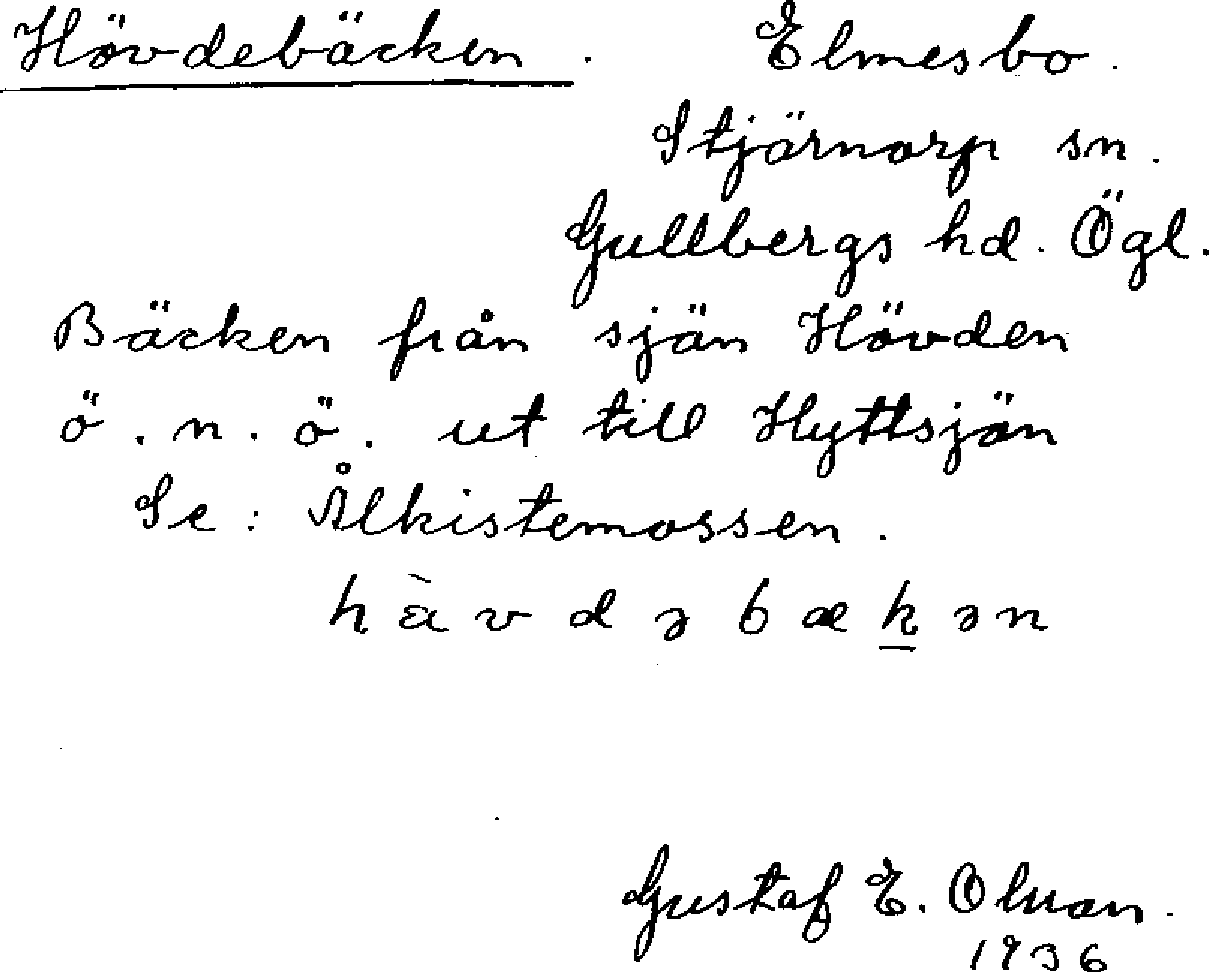 Hövdebäcken. Elmesbo.
Stjärnorp sn.
Gullbergs hd. Ögl.
Bäcken från sjön Hövden
ö.n.ö. ut till Hyttsjön
Se: Ålkistemossen.
Gustaf E. Olson.
1936